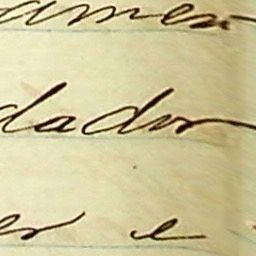 amen
dador
er e